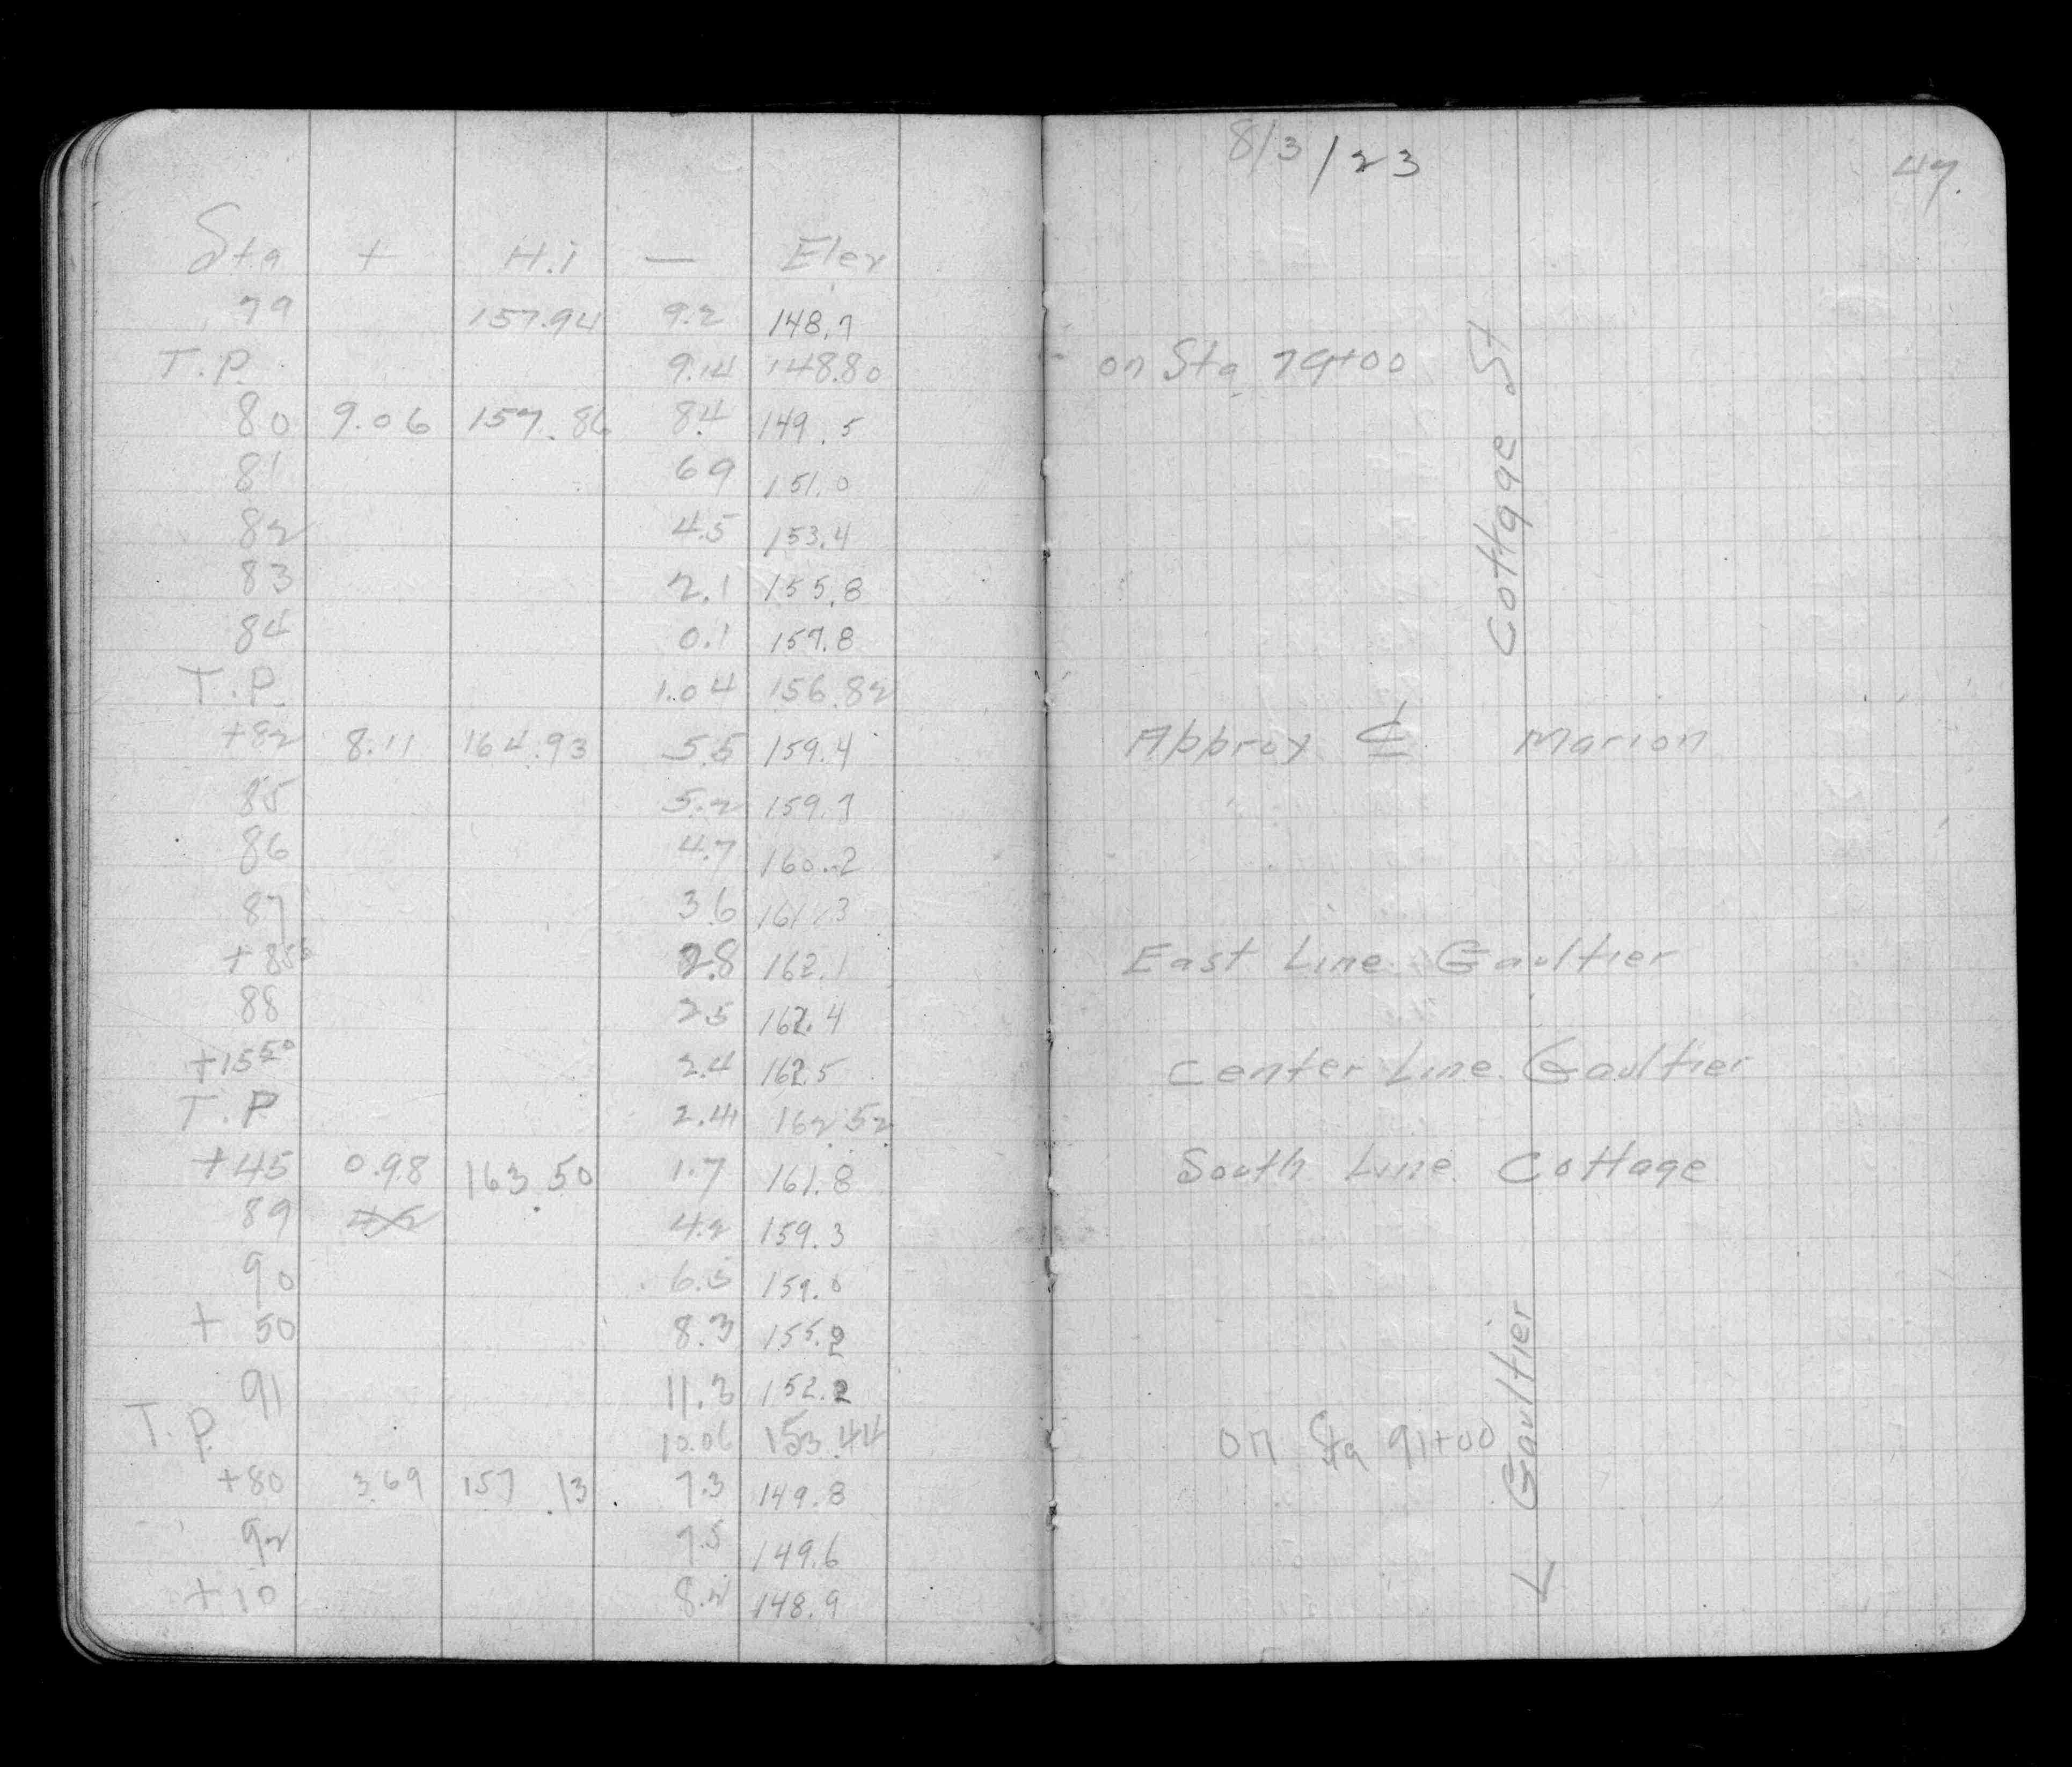 8/3/23
47.
Sta + H.i — Elev
79 157.94 9.2 148.7
T.P. 9.14 148.80 on Sta 79+00
80 9.06 157.86 8.4 149.5
81 6.9 151.0
82 4.5 153.4
83 2.1 155.8
84 0.1 157.8
Cottage St
T.P. 1.04 156.82
+82 8.11 164.93 5.5 159.4 Approx ℄ Marion
85 5.2 159.7
86 4.7 160.2
87 3.6 161.3
2.8 162.1 East Line Gaultier
88 2.5 162.4
+15 50 2.4 162.5 Center Line Gaultier
T.P 2.41 162.52
+45 0.98 163.50 1.7 161.8 South Line Cottage
89 4.2 159.3
90 159.0
+ 50 8.3 155.2
91 11.3 152.2
T.P. 10.06 153.44 on Sta 91+00
Gaultier
+80 3.69 157.13 7.3 149.8
92 7.5 149.6
+10 8.2 148.9